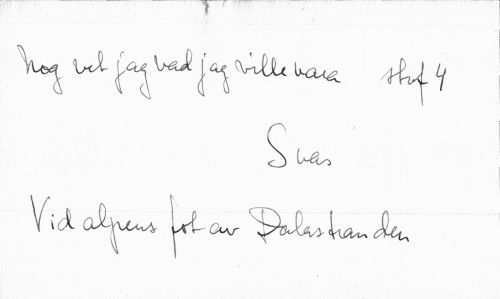 Nog vet jag vad jag ville vara strof 4
Svar
Vid alpens fot av Dalastranden